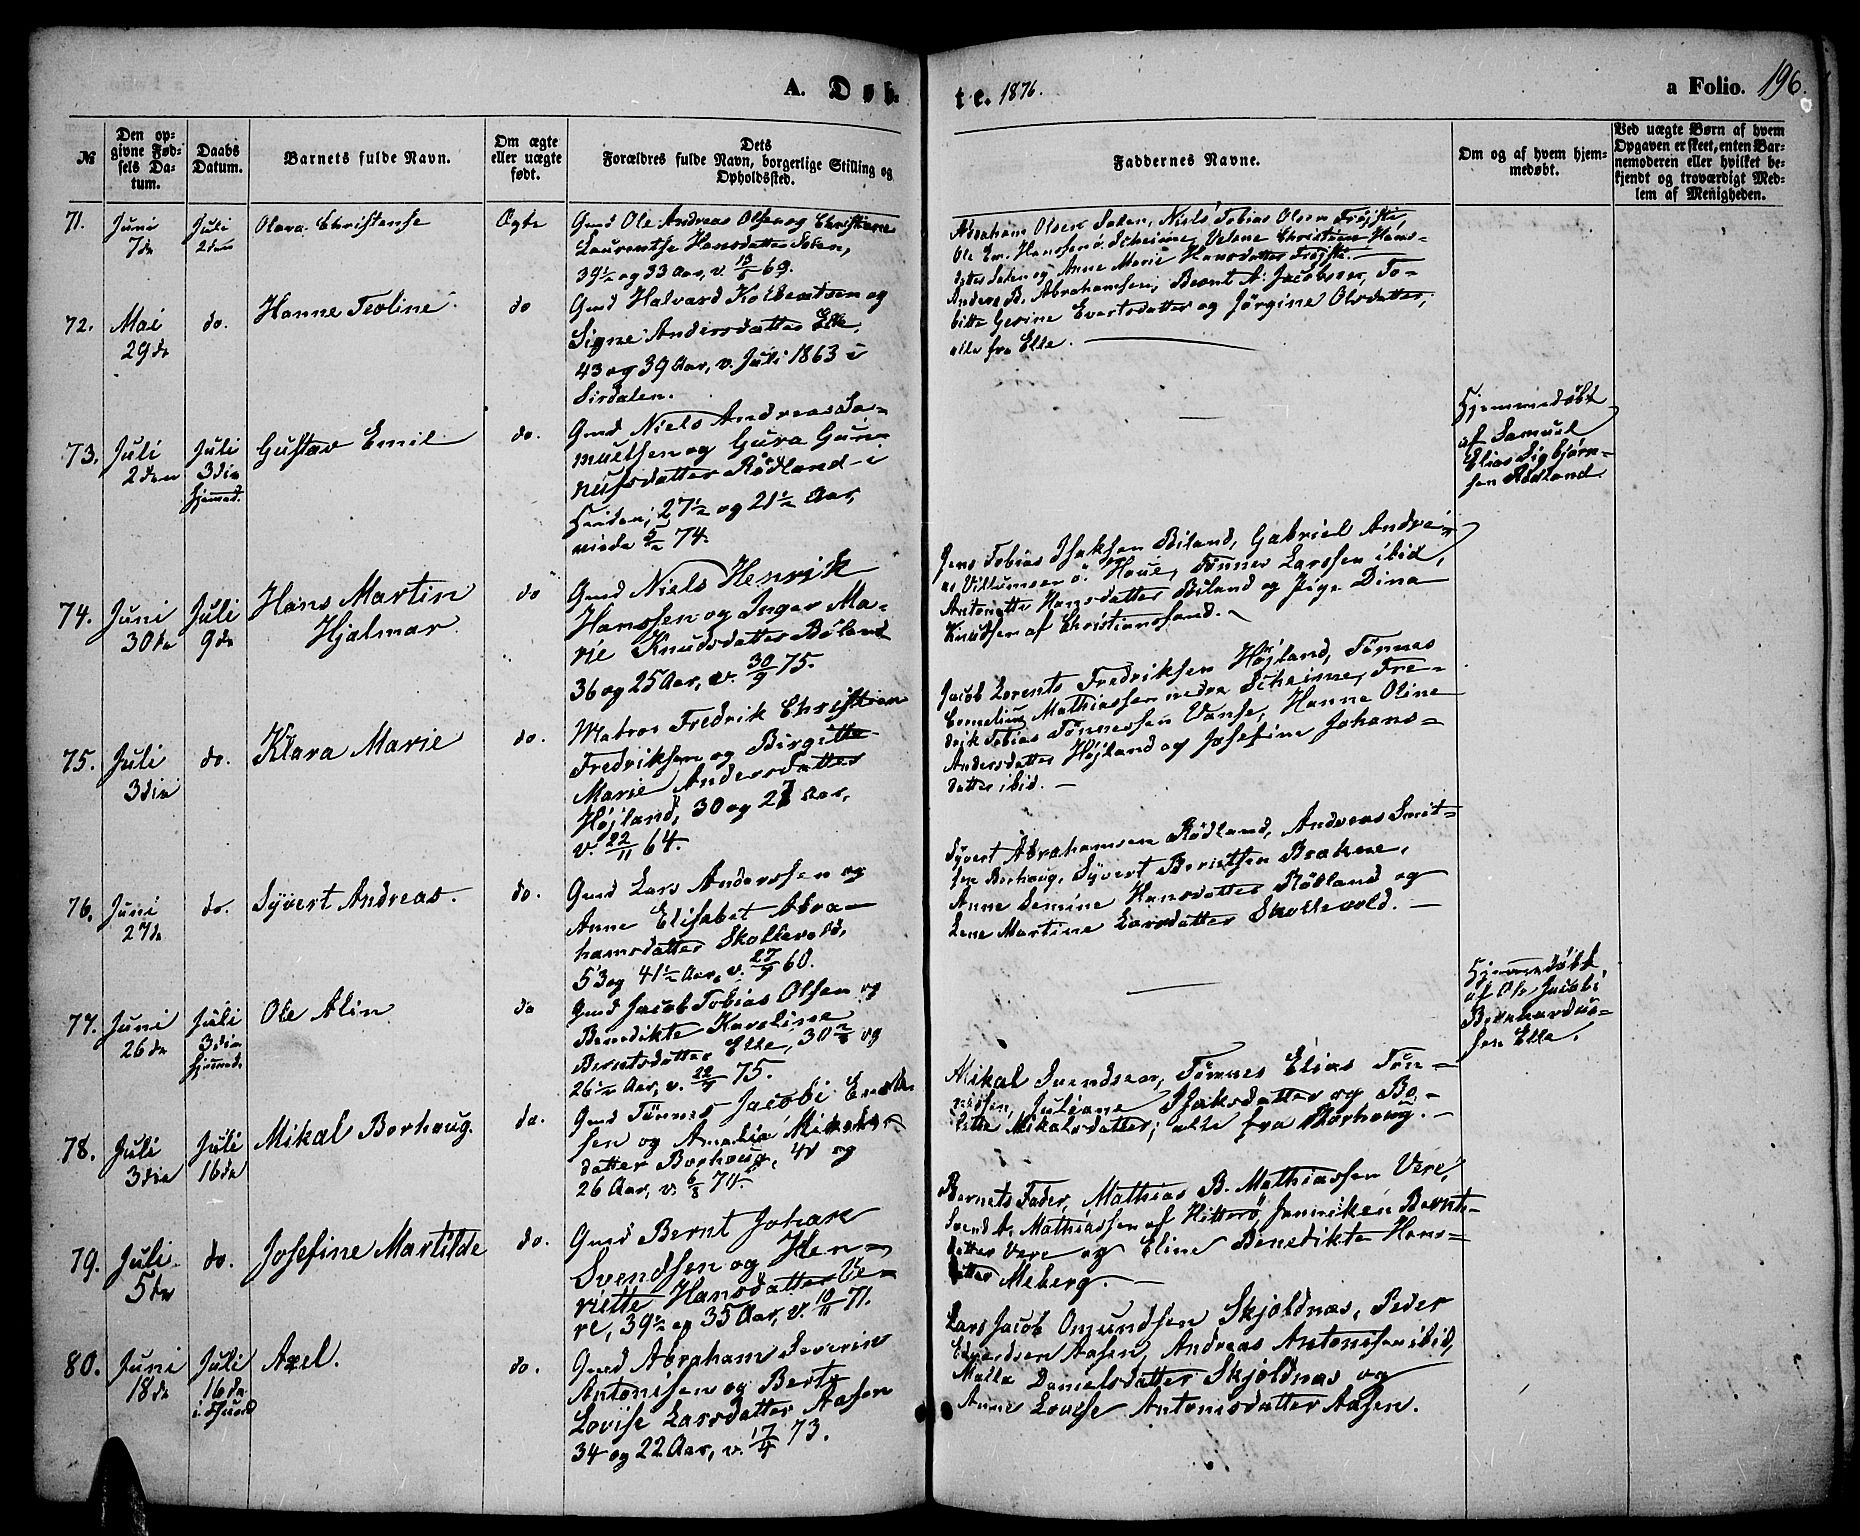 A. Døb-
te. 1876.
a Folio. 196.
№
Den op-
givne Fød-
sels Da-
tum.
Daabs
Datum.
Barnets fulde Navn.
Om ægte
eller uægte
født.
Dets
Forældres fulde Navn, borgerlige Stilling og
Opholdssted.
Faddernes Navne.
Om og af hvem hjem-
medøbt.
Ved uægte Børn af hvem
Opgaven er skeet, enten Bar-
nemoderen eller hvilket be-
kjendt og troværdigt Med-
lem af Menigheden.
71.
Juni
7de
Juli
2den
Olava Christense
Ægte
Gmd Ole Andreas Olsen og Christiane
Laurentse Hansdatter
39½ og 33 Aar, v. 69.
Abraham Olsen Niels Tobias Olsen
Ole Em. Hanssen ø. Scheime, Velene Christine Hans-
datter og Anne Marie Hansdatter
72.
Mai
29de
do.
Hanne Teoline
do
Gmd Halvard Kolbentsen og
Signe Andersdatter Elle,
43 og 39 Aar, v. Juli 1863 i
Sirdalen.
Andreas B. Abrahamsen, Bernt A. Jacobsen, To-
bitte Gesine Evertsdatter og Jørgine Olsdatter,
alle fra Elle.
73.
Juli
2den
Juli
3die
hjemmed.
Gustav Emil
do.
Gmd Niels Andreas Sa-
muelsen og Gura Gun-
nufsdatter Rødland i
27½ og 21½ Aar,
viede 74.
Hjemmedøbt
af Samuel
Elias Sigbjørn-
sen Rødland.
74.
Juni
30te
Juli
9de
Hans Martin
Hjalmar.
do
Gmd Niels Henrik
Hanssen og Inger Ma-
rie Knudsdatter Biland
36 og 25 Aar, v. 30/9 75.
Jens Tobias Isaksen Biland, Gabriel Andre-
as Villumsen ø. Haue, Tønnes Larssen ibid,
Antonette Hansdatter Biland og Pige Dina
Knudsen af Christianssand.
75.
Juli
3die
do.
Klara Marie
do.
Matros Fredrik Christian
Fredriksen og Birgitte
Marie Andersdatter
Højland, 30 og 27 Aar,
v. 22/11 64.
Jacob Lorents Fredriksen Højland, Tønnes
Cornelius Mathiassen nedre Scheime, Fre-
drik Tobias Tønnessen Vanse, Hanne Oline
Andersdatter Højland og Josefine Johans-
datter ibid.
76.
Juni
27de
do.
Syvert Andreas.
do.
Gmd Lars Anderssen og
Anne Elisabet Abra-
hamsdatter Skollevold,
53 og 41½ Aar, v. 27/9 60.
Syvert Abrahamsen Rødland, Andreas
sen Borhaug, Syvert Berntsen Brekne,
Anne Semine Hansdatter Rødland og
Lene Martine Larsdatter Skollevold.
77.
Juni
26de
Juli
3die
hjemmed.
Ole Alin
do
Gmd Jacob Tobias Olsen og
Benedikte Karoline
Berntsdatter Elle, 30 og
26½ Aar, v. 75.
Hjemmedøbt
af Ole Jacobi
Bernhardus-
sen Elle.
78.
Juli
3die
Juli
16de
Mikal Borhaug.
do.
Gmd Tønnes Jacobi
sen og Amalia Mikals-
datter Borhaug, 40 og
26 Aar, v. 6/8 74.
Mikal Svendsen, Tønnes Elias Tøn-
nessen, Juliane Isaksdatter og Bo-
lette Mikalsdatter; alle fra Borhaug.
79.
Juli
5te
do.
Josefine Martilde
do.
Gmd Bernt Johan
Svendsen og Hen-
riette Hansdatter Ve-
re, 39½ og 35 Aar, v. 10/11 71.
Barnets Fader, Mathias B. Mathiassen Vere,
Svend A. Mathiassen af Hitterø, Janniken Bernts-
datter Vere og Eline Benedikte Hans-
datter Meberg.
80.
Juni
18de
Juli
16de
Axel.
do.
Gmd Abraham Severin
Antonisen og Berte
Lovise Larsdatter Aasen
34 og 22 Aar, v. 17/4 73.
Lars Jacob Omundsen Skjoldnæs, Peder
Edvardsen Aasen, Andreas Antonissen ibid,
Malla Danielsdatter Skjoldnæs og
Anne Lovise Antonisdatter Aasen.